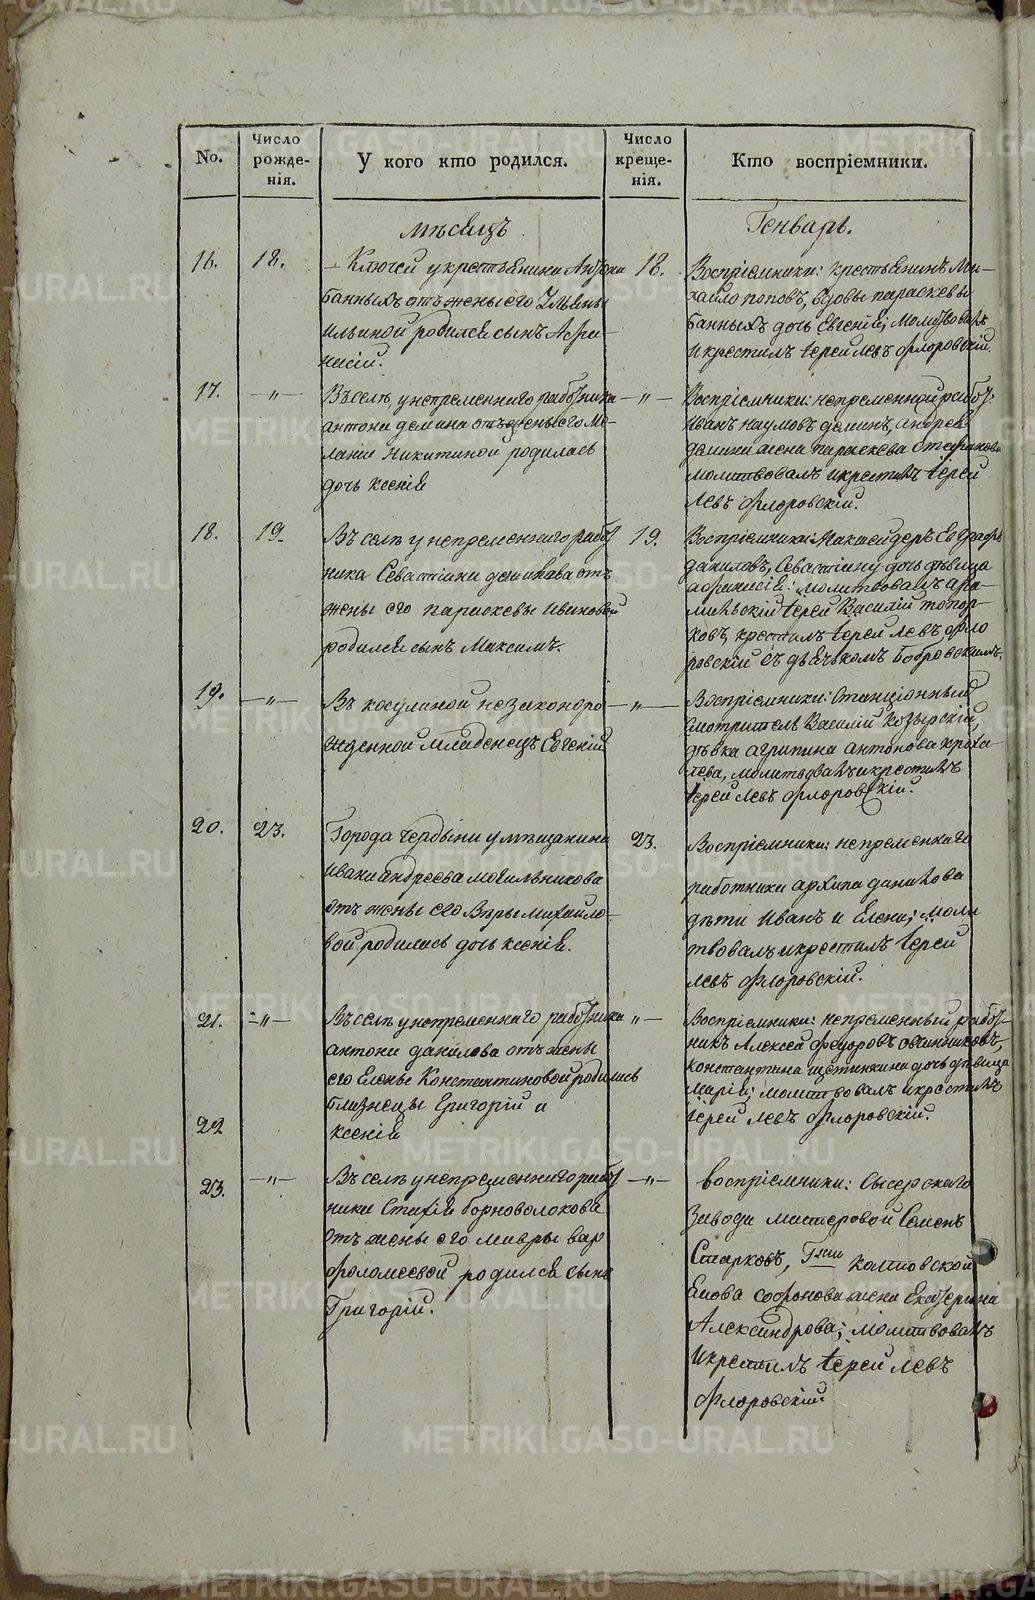 No.
Число рожде-нія.
У кого кто родился.
Число креще-нія.
Кто воспріемники.
мѣсяцъ
Генварь.
16.
18.
Ключей у крестьянина
Банныхъ отъ жены его Ульяны
Ильиной родился сынъ Афана
насій.
18.
Воспріемники: крестьянинъ Ми-
хайло поповъ, вдовы параскевы
Банныхъ дочь Евгенія; молитвовалъ
и крестилъ іерей левъ флоровскій.
17.
—„—
Въ селѣ у непременнаго работника
антона демина отъ жены его Ме-
ланіи Никитиной родилась
дочь ксенія
—„—
Воспріемники: непременный работ:
Иванъ наумовъ деминъ, андрея
демина жена параскева
молитвовалъ и крестилъ іерей
левъ флоровскій.
18.
19.
Въ селѣ у непременнаго работ
ника Севастіана данилова отъ
жены его параскевы Ивановой
родился сынъ Максимъ.
19.
Воспріемники: Евграфъ
даниловъ, Севастіана дочь дѣвица
афанасія: молитвовалъ ара-
мильскій іерей Василій топор-
ковъ, крестилъ іерей левъ фло
ровскій съ дьячькомъ Бобровскимъ.
19.
—„—
Въ косулиной незаконоро
жденной младенецъ Евгеній
—„—
Воспріемники: Станціонный
смотритель Василій Козырскій,
дѣвка агрипина антонова
молитвовалъ и крестилъ
іерей левъ флоровскій.
20.
23.
Города Чердыни у мѣщанина
Ивана андреева могильникова
отъ жены его Вѣры михайло-
вой, родилась дочь ксенія.
23.
Воспріемники: непременнаго
работника архипа данилова
дѣти Иванъ и Елена; моли
твовалъ и крестилъ іерей
левъ флоровскій.
21.
—„—
Въ селѣ у непременнаго работника
антона данилова отъ жены
его Елены Константиновой родились
близнецы Григорій и
22
ксенія
—„—
Воспріемники: непременный работ-
никъ Алексей федоровъ овчинниковъ,
константина щетинкина дочь дѣвица
марія; молитвовалъ и крестилъ
іерей левъ флоровскій.
23.
—„—
Въ селѣ у непременнаго работ
ника Стахія борноволокова
отъ жены его мавры вар
фоломеевой родился сынъ
Григорій.
—„—
воспріемники: Сысерскаго
завода мастеровой Семенъ
Старковъ,
софонова жена Екатерина
Александрова; молитвовалъ
и крестилъ іерей левъ
флоровскій
METRIKI.GASO-URAL.RU